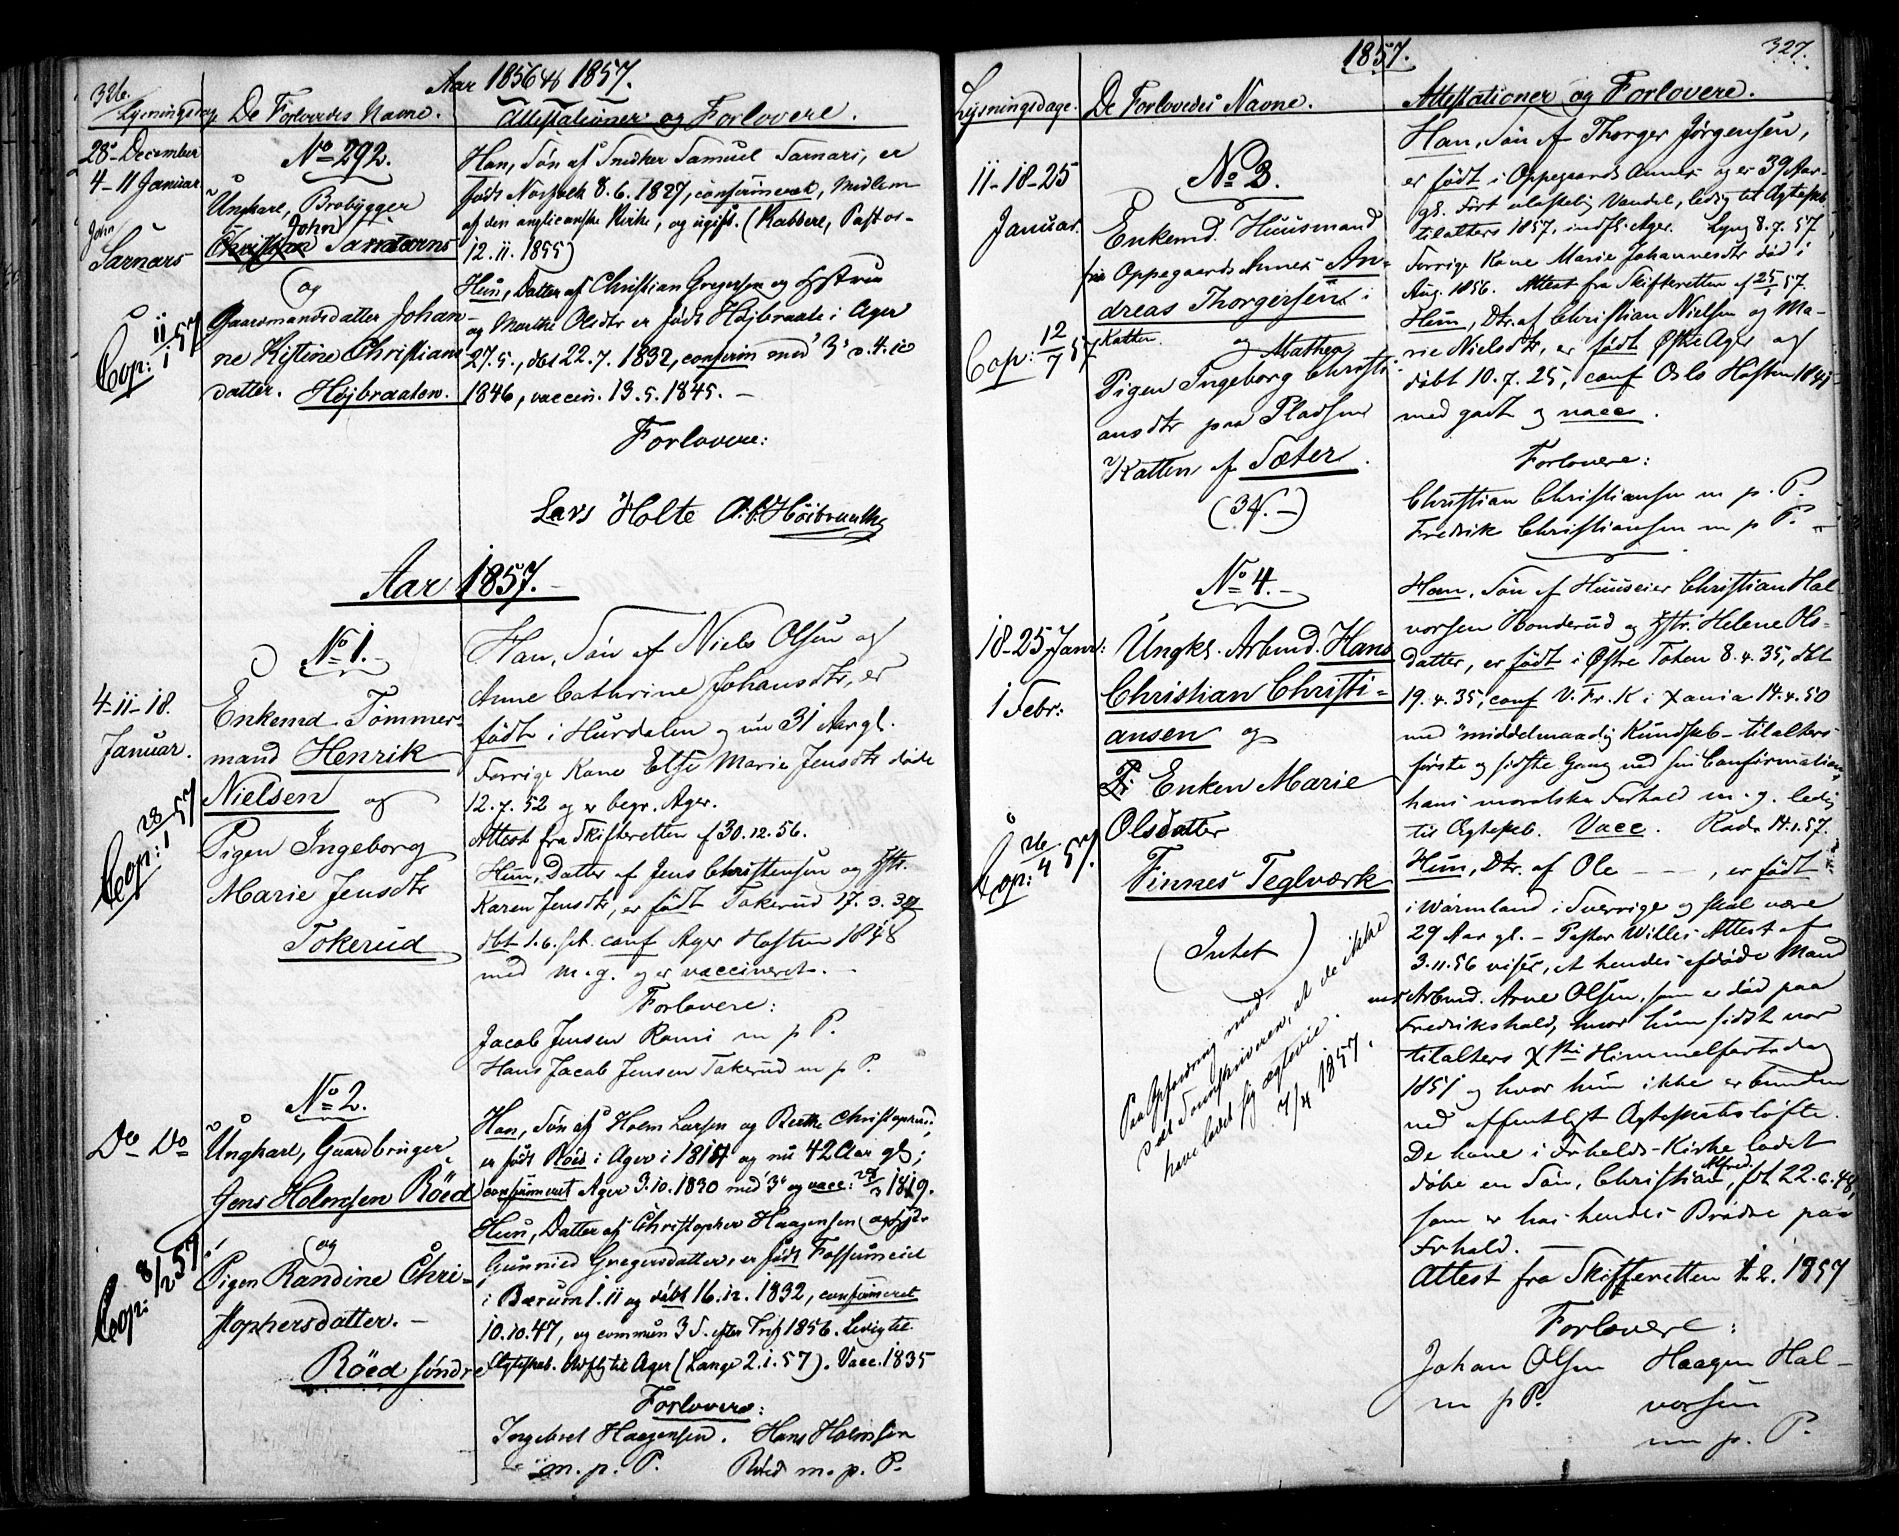 326.
Aar 1856 og 1857.
Lysningsdag De Forlovedes Navne. Attestationer og Forlovere.
28 December
4-11 Januar
John
Sarnars
Cop: 11/1 57
No 292.
Ungkarl, Brobygger
John
Christian Sarnarns
og
Gaardmandsdatter Johan-
ne Kistine Christians
datter. Højbraaten.
Han, Søn af Snedker Samuel Sarnars, er
født Norfolk 8.6.1827, confirmeret, Medlem
af den anglicanske Kirke, og ugift. (Rabbere, Pastor
12.11.1855)
Hun, Datter af Christian Gregersen og Hstru
og Marthe Olsdtr er født Højbraate i Ager
27.5., døbt 22.7.1832, confirm med 3 d. 4.10
1846, vaccin. 13.5.1845. —
Forlovere:
Lars Holte A. C. Høibraathe
Aar 1857. —
No 1. —
4-11-18.
Januar.
Cop: 28/1 57
Enkemd. Tømmer-
mand Henrik
Nielsen og
Pigen Ingeborg
Marie Jensdtr
Tokerud
Han, Søn af Niels Olsen og
Anne Cathrine Johansdtr, er
født i Hurdalen og nu 31 Aar gl.
Forrige Kone Else Marie Jensdtr døde
12.7.52 og er begr. Ager.
Attest fra Skifteretten af 30.12.56.
Hun, Datter af Jens Christensen og Hstr.
Karen Jensdtr, er født Tokerud 17.3.34
dbt 1.6. s.A. conf Ager Høsten 1848
med m.g. og er vaccineret. —
Forlovere:
Jacob Jensen Romi m p P.
Hans Jacob Jensen Tokerud m p P.
No 2.
Do Do
Cop: 8/2 57
Ungkarl, Gaardbruger
Jens Holmsen Röed
og
Pigen Randine Chri-
stophersdatter. —
Röed søndre
Han, Søn af Holm Larsen og Berthe Christophersd.,
er født Röed i Ager i 1815 og nu 42 Aar gl;
confirmeret Ager 3.10.1830 med 3 og vacc: 1819.
Hun, Datter af Christopher Haagensen og Hstr
Gunnild Gregersdatter, er født Fossumeid
i Bærum 1.11 og døbt 16.12.1832, confirmeret
10.10.47, og commun 3 S. efter Trif 1856. Ledig til
Ægteskab. Udflg til Ager (Lange 2.1.57). Vacc. 1835
Forlovere:
Ingebret Haagensen. Hans Holmsen
m. p. P. Röed m. p. P.
1857.
327.
Lysningsdage. De Forlovedes Navne. Attestationer og Forlovere.
11-18-25
Januar.
Cop: 12/7 57
No 3.
Enkemd. Huusmand
fra Oppegaards Annex An-
dreas Thorgersen i
Katten. og
Mathea
Pigen Ingeborg Christi-
ansdtr paa Pladsen
Katten af Sæter.
(34. —)
Han, Søn af Thorger Jørgensen,
er født i Oppegaards Annex og er 39 Aar
gl. Ført ulastelig Vandel, ledig til Ægtesk.
tilalters 1857. indfl. Ager. Lyng 8.7.57.
Forrige Kone Marie Johannesdtr død i
Aug. 1856. Attest fra Skifteretten af 25/1 57.
Hun, Dtr. af Christian Nielsen og Ma-
rie Nielsdtr, er født Østre Ager og
døbt 10.7.25, conf Oslo Høsten 1841
med godt og vacc.
Forlovere:
Christian Christiansen m. p. P.
Fredrik Christiansen m p P.
No 4. —
18-25 Janr:
1 Febr:
Cop: 26/4 57.
Ungk. Arbmd. Hans
Christian Christi-
ansen og
Enken Marie
Olsdatter
Finnes Teglværk
(Intet)
Paa Opfordring med-
delt Sognskriveren, at de ikke
have ladet sig ægtevie.
7/4 1857.
Han, Søn af Huuseier Christian Hal
vorsen Bonderud og Hstr. Helene Ols-
datter, er født i Østre Toten 8.4.35, dbt
19.4.35, conf V. Fr. K i Xania 14.4.50
med middelmaadig Kundskab - tilalters
første og sidste Gang ved sin Confirmation
hans moralske Forhold m. g. ledig
til Ægtesk. Vacc. Rode 14.1.57.
Hun, Dtr. af Ole — —, er født
i Wärmland i Sverrige og skal være
29 Aar gl. - Pastor Willes Attest af
3.11.56 viser, at hendes afdøde Mand
var Arbmd. Arne Olsen, som er død paa
Fredrikshald, hvor hun sidst var
tilalters Xsti Himmelfartsdag
1851 og hvor hun ikke er bunden
ved offentligt Ægteskabsløfte.
De have i Frhalds-Kirke ladet
døbe en Søn, Christian Alfred, fdt 22.6.48,
som er hos hendes Brødre paa
Frhald. —
Attest fra Skifteretten 2. 1857
Forlovere:
Johan Olsen Haagen Hal-
m p P. vorsen
m. p. P.